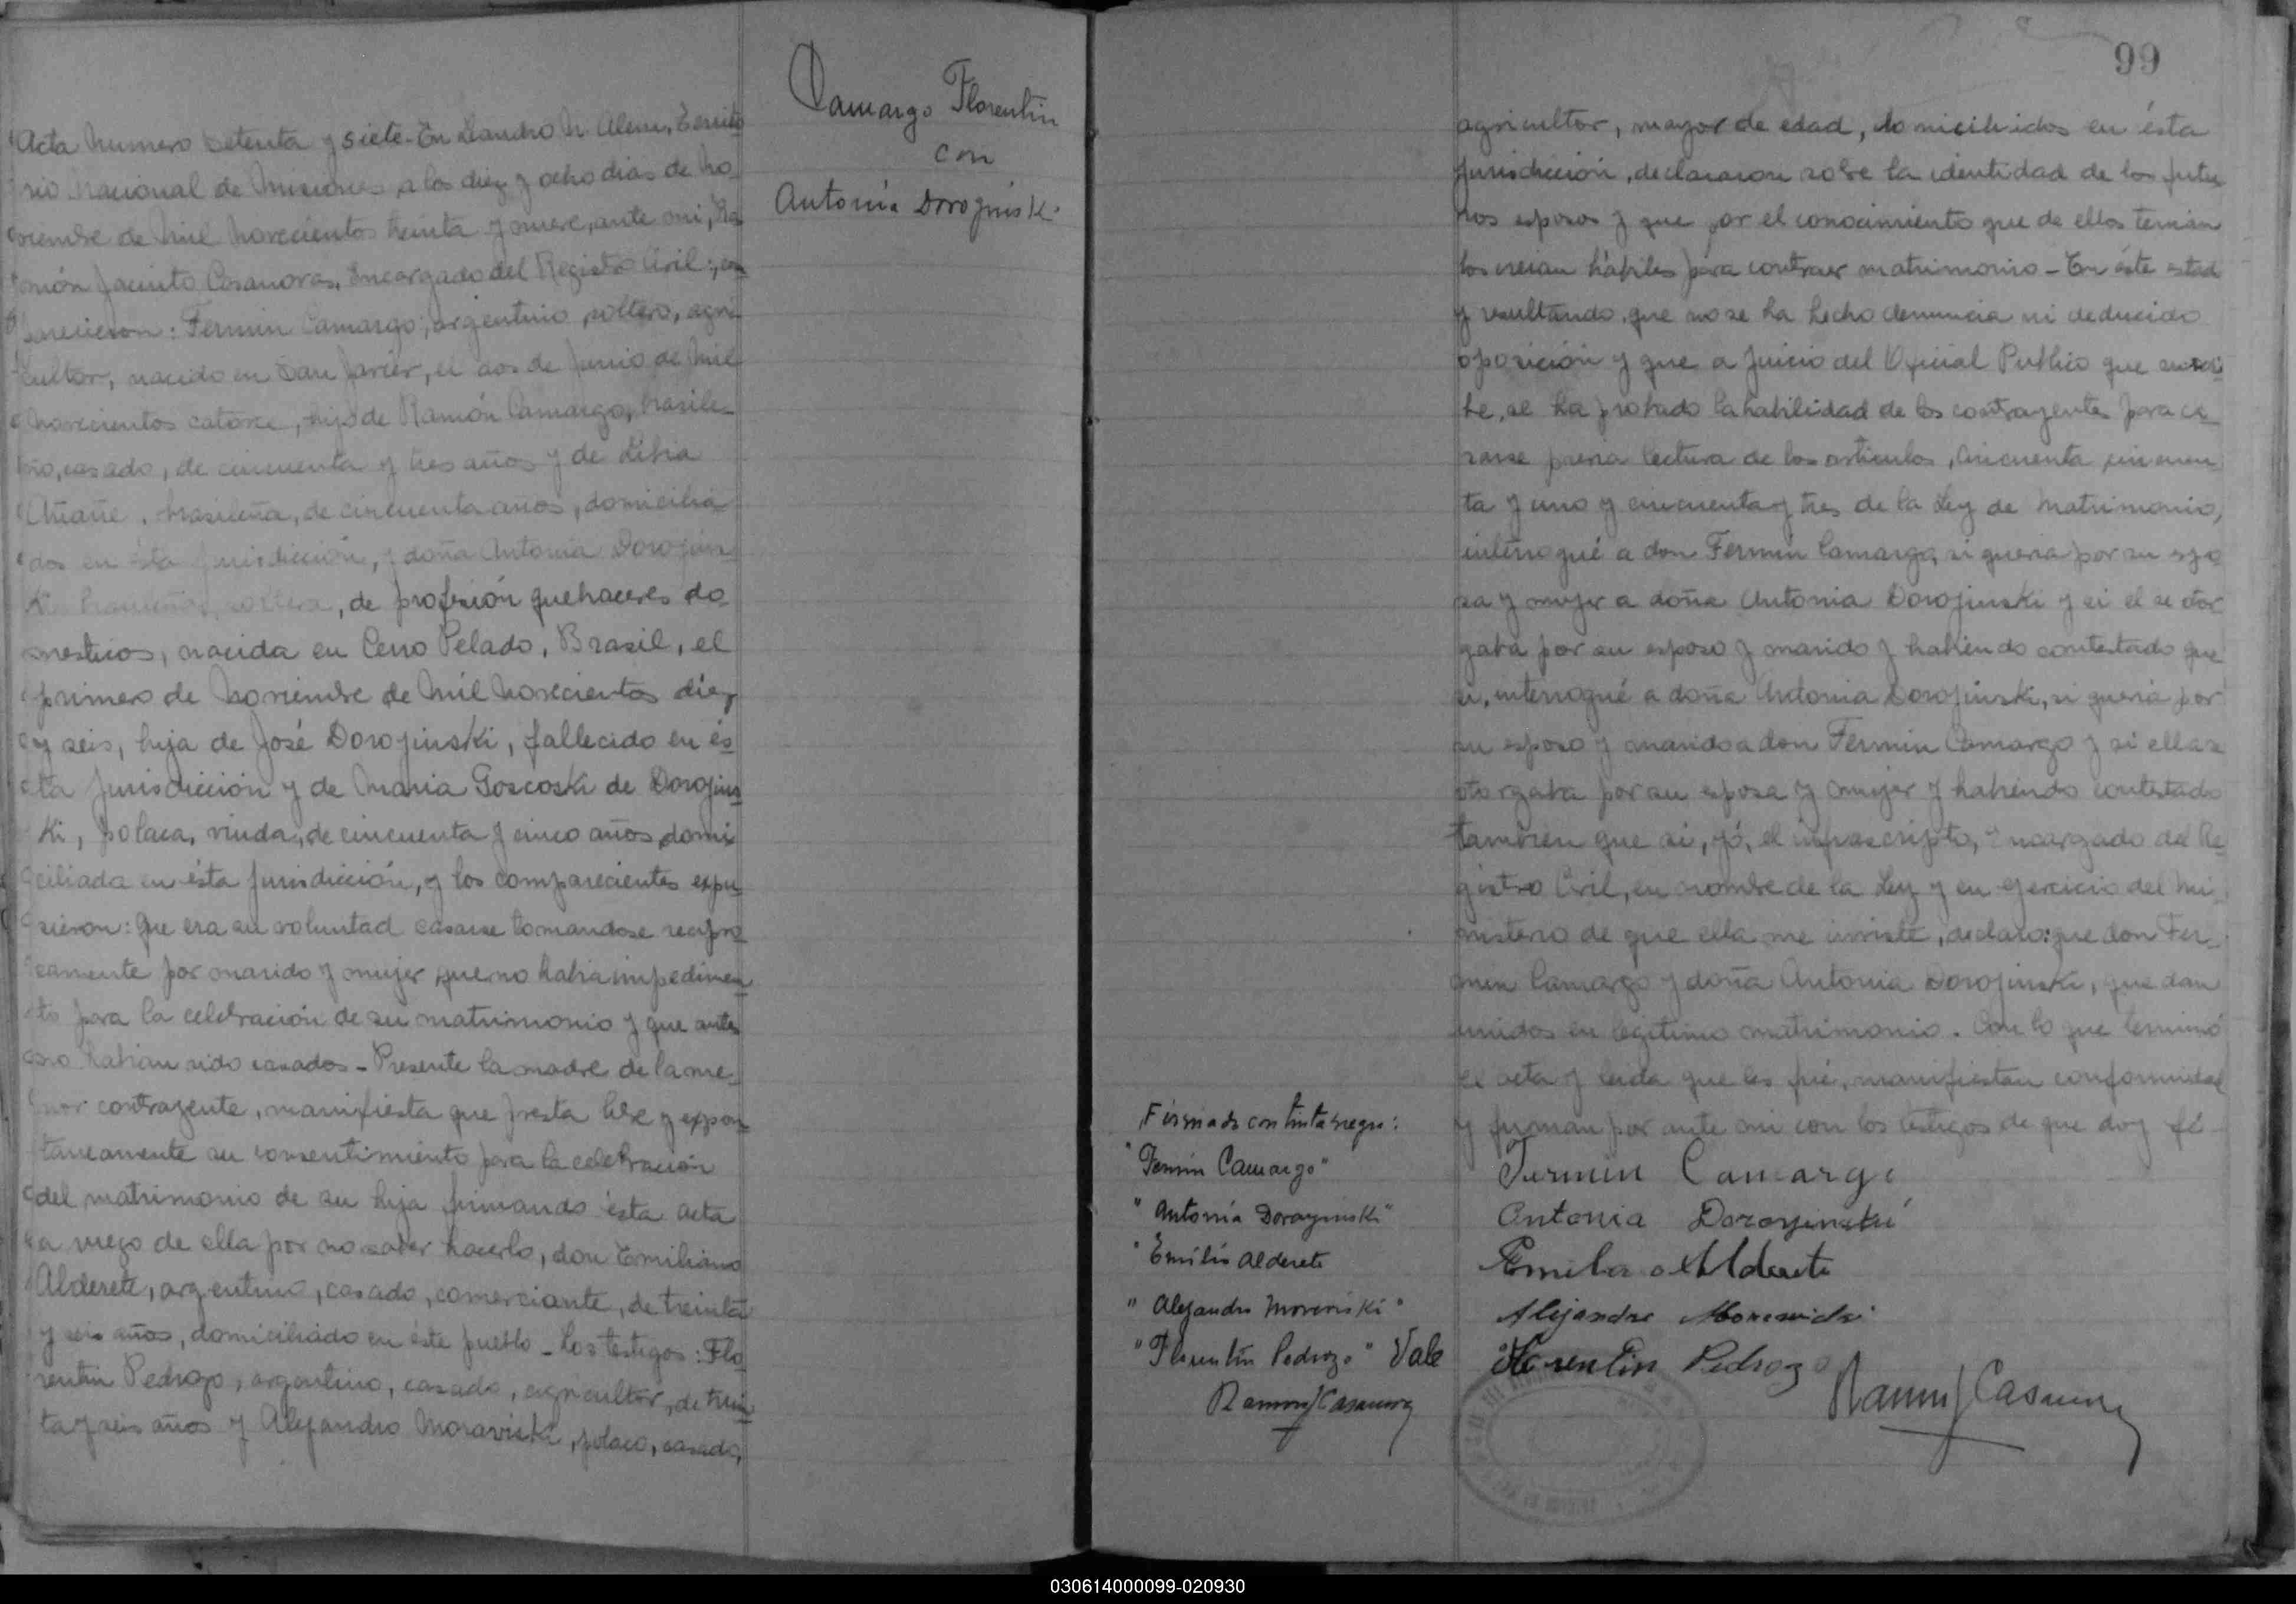 Acta Numero Setenta y siete - En Leandro N. Alem, Territo
rio Nacional de Misiones, a los diez y ocho dias de No
viembre de mil novecientos treinta y nueve, ante mi, Ra
món Jacinto Casanova, Encargado del Registro Civil; com
parecieron: Fermin Camargo, argentino, soltero, agri
cultor, nacido en San Javier, el dos de Junio de mil
novecientos catorce, hijo de Ramón Camargo, brasile
ño, casado, de cincuenta y tres años y de
brasileña, de cincuenta años, domicilia
dos en ésta jurisdicción, y doña Antonia Dorojins
ki soltera, de profesión quehaceres do
mesticos, nacida en Cerro Pelado, Brasil, el
primero de Noviembre de mil novecientos diez
y seis, hija de José Dorojinski, fallecido en és
ta jurisdicción y de Maria Goscoski de Dorojins
ki, polaca, viuda, de cincuenta y cinco años, domi
ciliada en ésta jurisdicción, y los comparecientes expu
sieron: que era su voluntad casarse tomandose recipro
camente por marido y mujer, que no habia impedimen
to para la celebración de su matrimonio y que antes
no habian sido casados - Presente la madre de la me
nor contrayente, manifiesta que presta libre y espon
taneamente su consentimiento para la celebración
del matrimonio de su hija firmando ésta acta
a ruego de ella por no saber hacerlo, don Emiliano
Alderete, argentino, casado, comerciante, de treinta
y seis años, domiciliado en éste pueblo - Los testigos: Flo
rentin Pedrozo, argentino, casado, agricultor, de trein
ta y seis años y Alejandro Moraviski, polaco, casado,
Camargo Florentin
con
Antonia Dorojinski
99
agricultor, mayor de edad, domiciliados en ésta
jurisdicción, declararon sobre la identidad de los futu
ros esposos y que por el conocimiento que de ellos tenian
los creian hábiles para contraer matrimonio - En éste estado
y resultando, que no se ha hecho denuncia ni deducido
oposición y que a juicio del Oficial Publico que suscri
be, se ha probado la habilidad de los contrayentes para ca
sarse previa lectura de los articulos, cincuenta, cincuen
ta y uno y cincuenta y tres de la Ley de Matrimonio,
interrogué a don Fermin Camargo, si queria por su espo
sa y mujer a doña Antonia Dorojinski y si el se otor
gaba por su esposo y marido y habiendo contestado que
si, interrogué a doña Antonia Dorojinski, si queria por
su esposo y marido a don Fermin Camargo y si ella se
otorgaba por su esposa y mujer y habiendo contestado
tambien que si, yó, el infrascripto, Encargado del Re
gistro Civil, en nombre de la Ley y en ejercicio del Mi
nisterio de que ella me inviste, declaro: que don Fer
min Camargo y doña Antonia Dorojinski, quedan
unidos en legitimo matrimonio. Con lo que terminó
el acta y leida que les fué, manifiestan conformidad
y firman por ante mi con los testigos de que doy fé -
Firmado con tinta negra:
"Fermin Camargo"
"Antonia Dorayinski"
"Emilio Alderete
"Alejandro Moroviski"
"Florentin Pedrozo" Vale
Ramon J Casanova
Fermin Camargo
Antonia Dorayinski
Emilio Alderete
Alejandro
Florentin Pedrozo
Ramon J Casanova
030614000099-020930